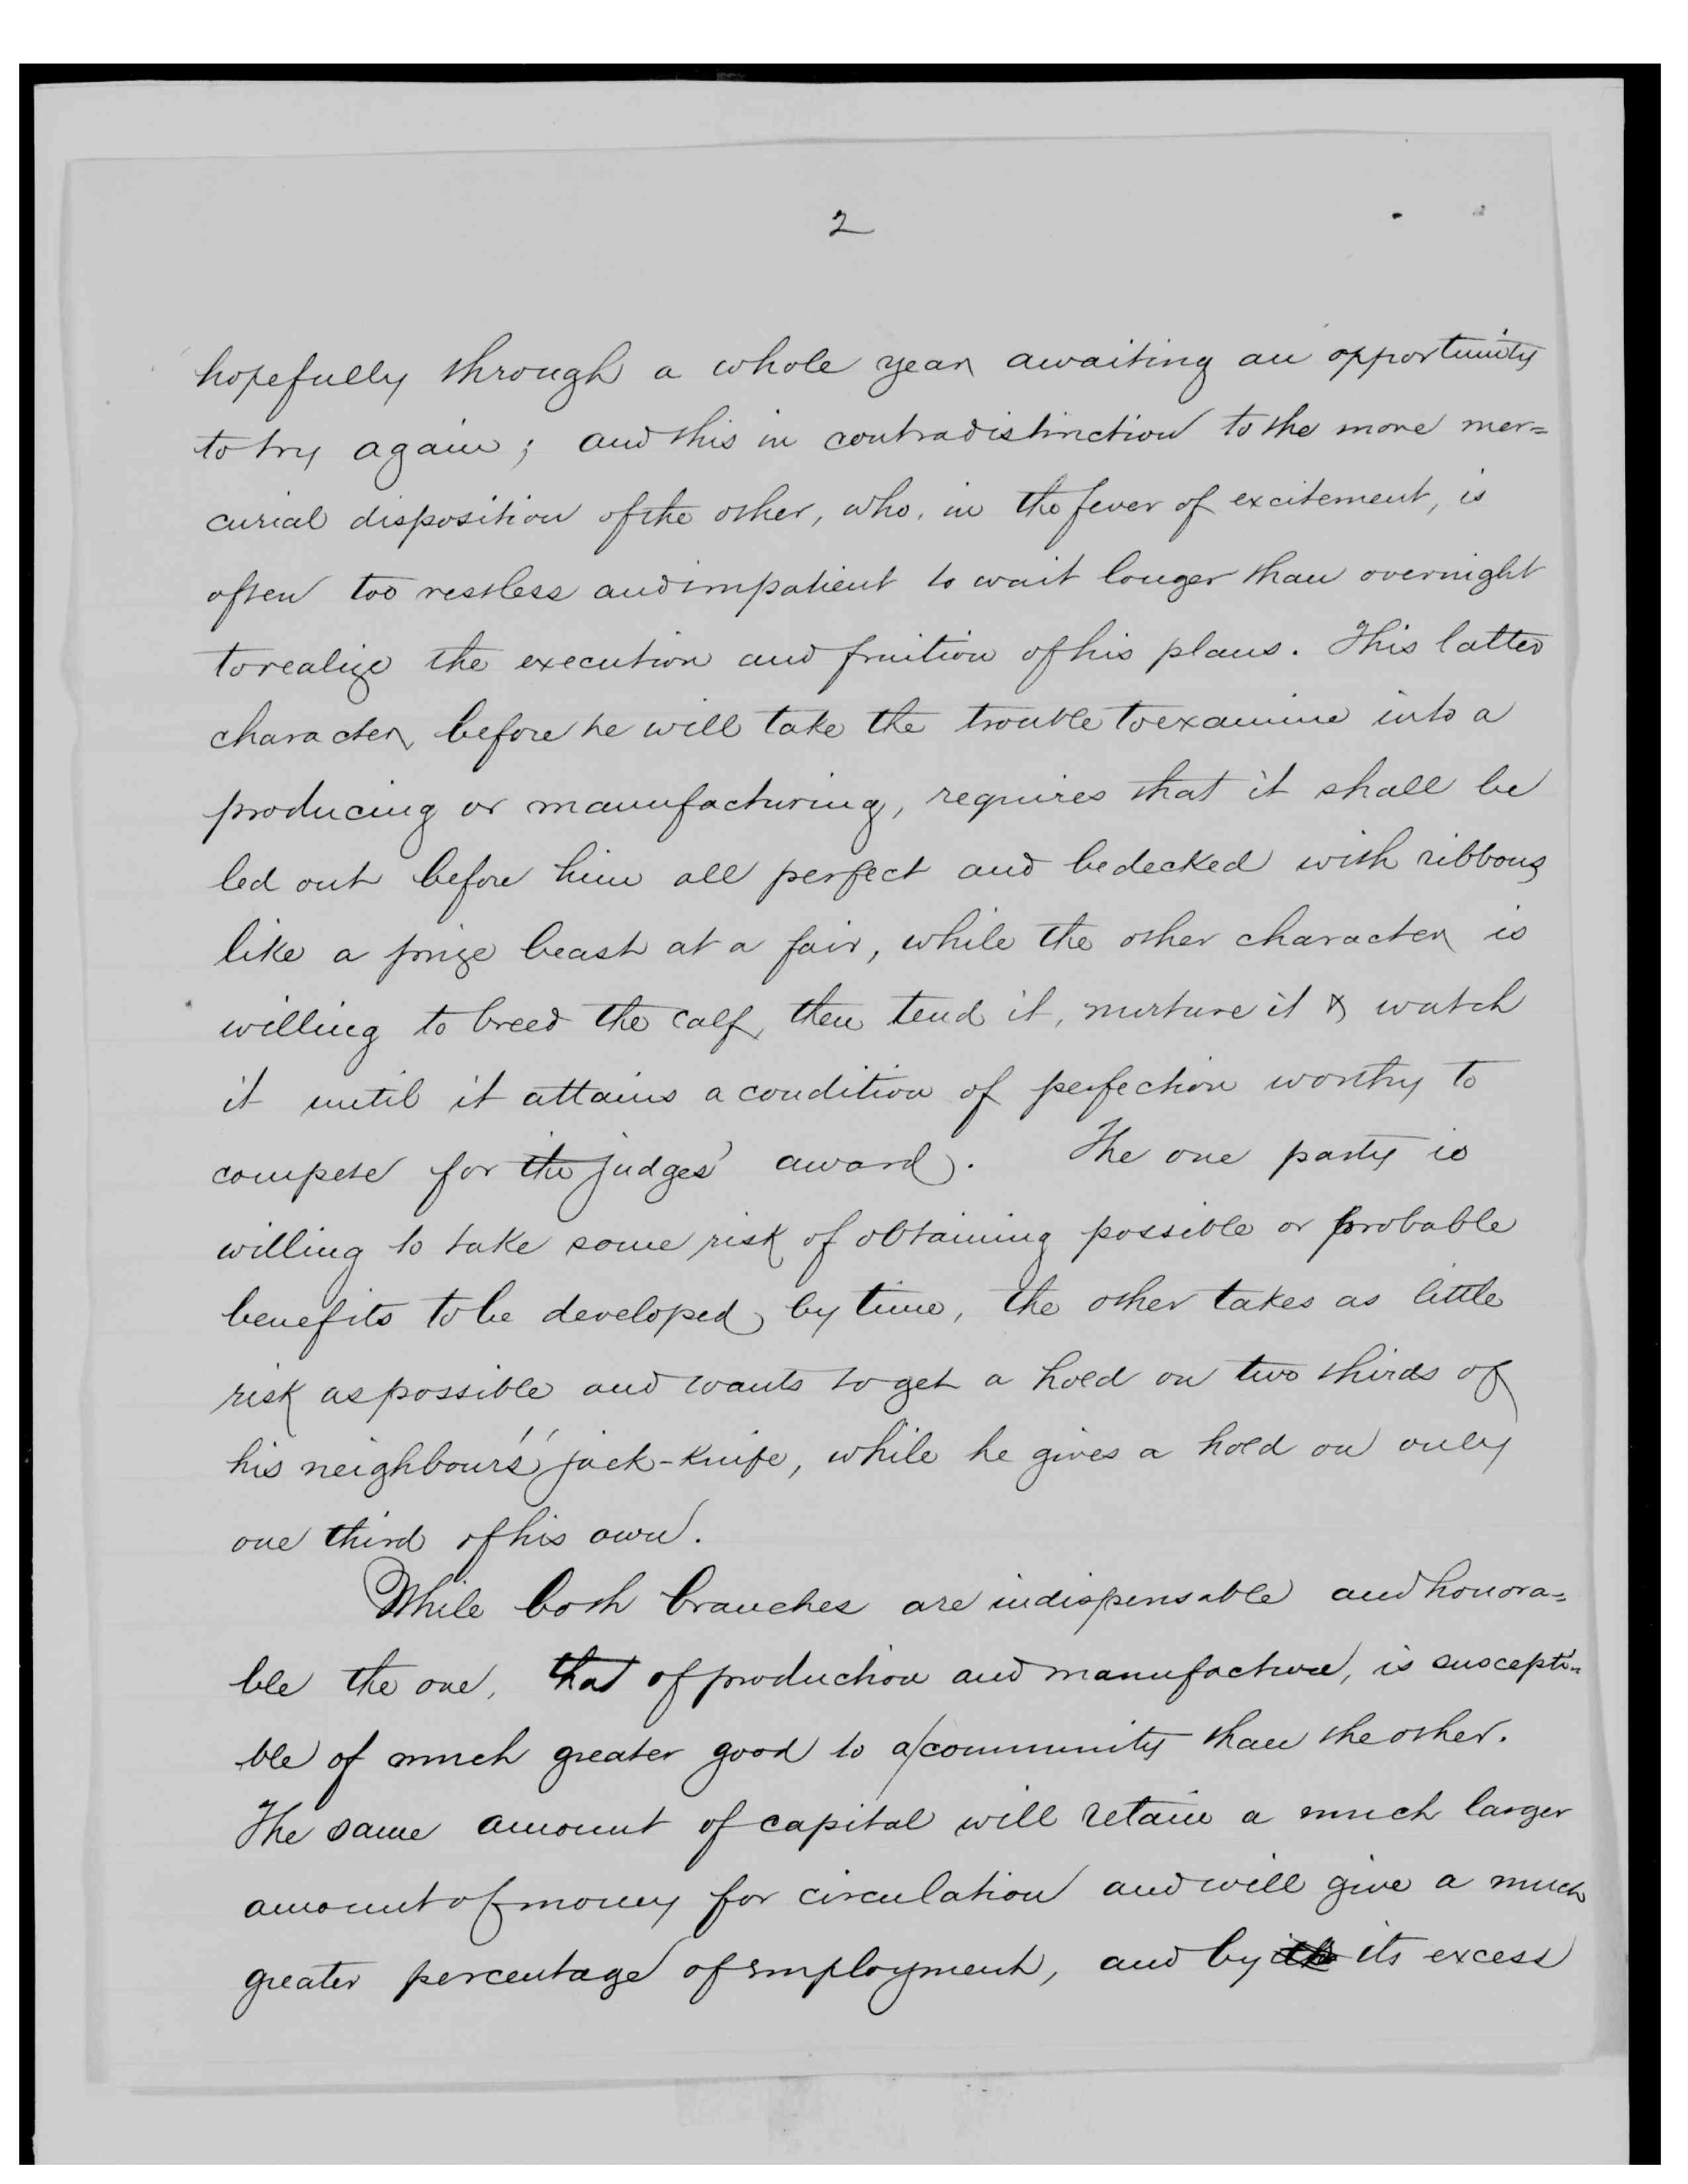 2
hopefully through a whole year awaiting an opportunity
to try again; and this in contradistinction to the more mer=
curial disposition of the other, who, in the fever of excitement, is
often too restless and impatient to wait longer than overnight
to realize the execution and fruition of his plans. This latter
character, before he will take the trouble to examine into a
producing or manufacturing, requires that it shall be
led out before him all perfect and bedecked with ribbons
like a prize beast at a fair, while the other character is
willing to breed the calf, then tend it, nurture it & watch
it until it attains a condition of perfection worthy to
compete for the judges' award. The one party is
willing to take some risk of obtaining possible or probable
benefits to be developed by time, the other takes as little
risk as possible and wants to get a hold on two thirds of
his neighbour's' jack-knife, while he gives a hold on only
one third of his own.
While both branches are indispensable and honora=
ble the one, that of production and manufacture, is suscepti=
ble of much greater good to a/community than the other.
The same amount of capital will retain a much larger
amount of money for circulation and will give a much
greater percentage of employment, and by its excess